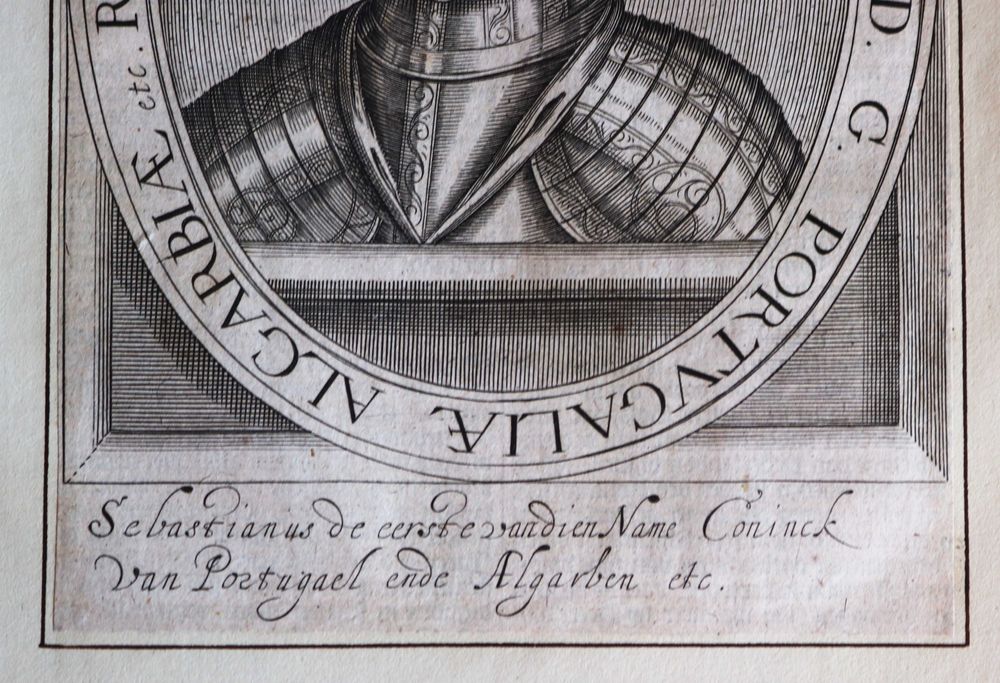 D. G. PORTVGALIÆ ALGARBIÆ etc. R
Sebastianus de eerste vandien Name Coninck
Van Portugael ende Algarben etc.